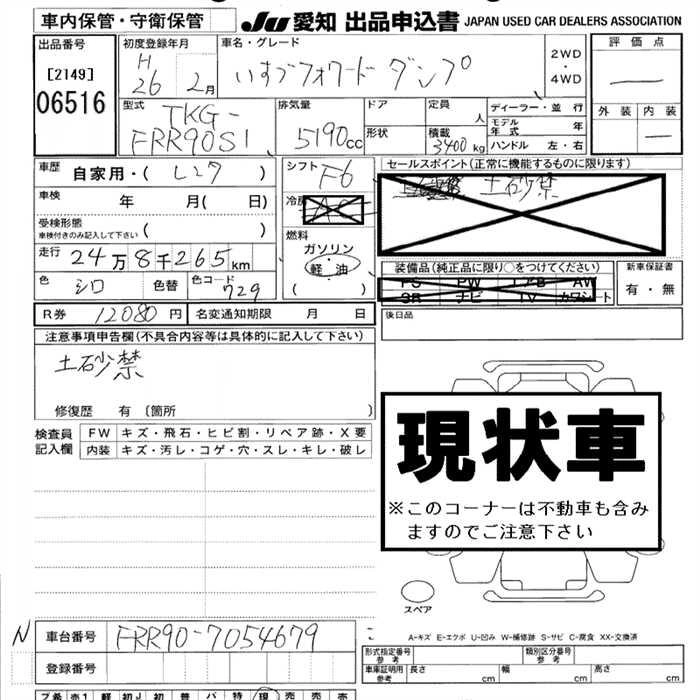 車内保管・守衛保管
JU 愛知 出品申込書 JAPAN USED CAR DEALERS ASSOCIATION
出品番号
[2149]
06516
初度登録年月
H
26 2月
車名・グレード
いすゞフォワード ダンプ
2WD
・
4WD
評価点
外装 内装
型式
TKG-
FRR90S1
排気量
5190cc
ドア
形状
定員
人
積載
3400kg
ディーラー・並行
モデル
年式 年
ハンドル 左・右
車歴
自家用・( レンタ )
車検
年 月( 日)
受検形態
車検付きのみ記入して下さい ( )
走行
24万8千265km
色 シロ 色替 色コード 729
シフト F6
冷房 AC
燃料
ガソリン
軽油
( )
セールスポイント(正常に機能するものに限ります)
土砂禁
装備品(純正品に限り○をつけてください)
PS PW エアB AW
SR ナビ TV カワシート
新車保証書
有・無
R券 12080円 名変通知期限 月 日
後日品
注意事項申告欄(不具合内容等は具体的に記入して下さい)
土砂禁
修復歴 有 〔箇所 〕
検査員
記入欄
FW キズ・飛石・ヒビ割・リペア跡・X要
内装 キズ・汚レ・コゲ・穴・スレ・キレ・破レ
現状車
※このコーナーは不動車も含み
ますのでご注意下さい
スペア
A-キズ E-エクボ U-凹み W-補修跡 S-サビ C-腐食 XX-交換済
N
車台番号 FRR90-7054679
登録番号
形式指定番号
参考
類別区分番号
参考
車庫証明用
参考
長さ 幅 高さ